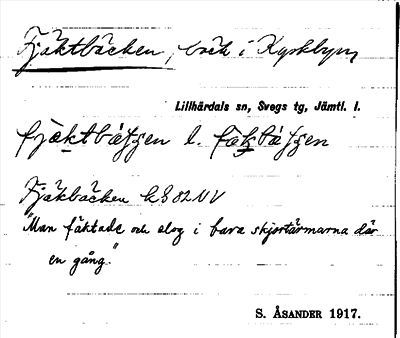 Fjäktbäcken, bäck i Kyrkbyn
Lillhärdals sn, Svegs tg, Jämtl. l.
fjäktbäʃʃen l. fäkbäʃʃen
Fjäkbäcken kS 82 NV
"Man fäktade och slog i bara skjortärmarna där
en gång."
S. ÅSANDER 1917.